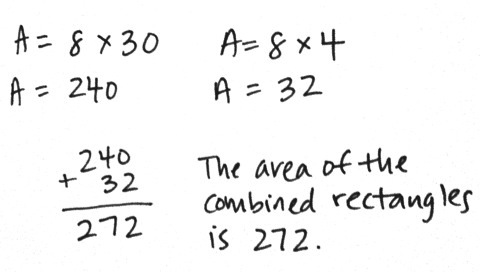 A = 8 × 30
A = 240
A = 8 × 4
A = 32
240
+ 32
272
The area of the
combined rectangles
is 272.